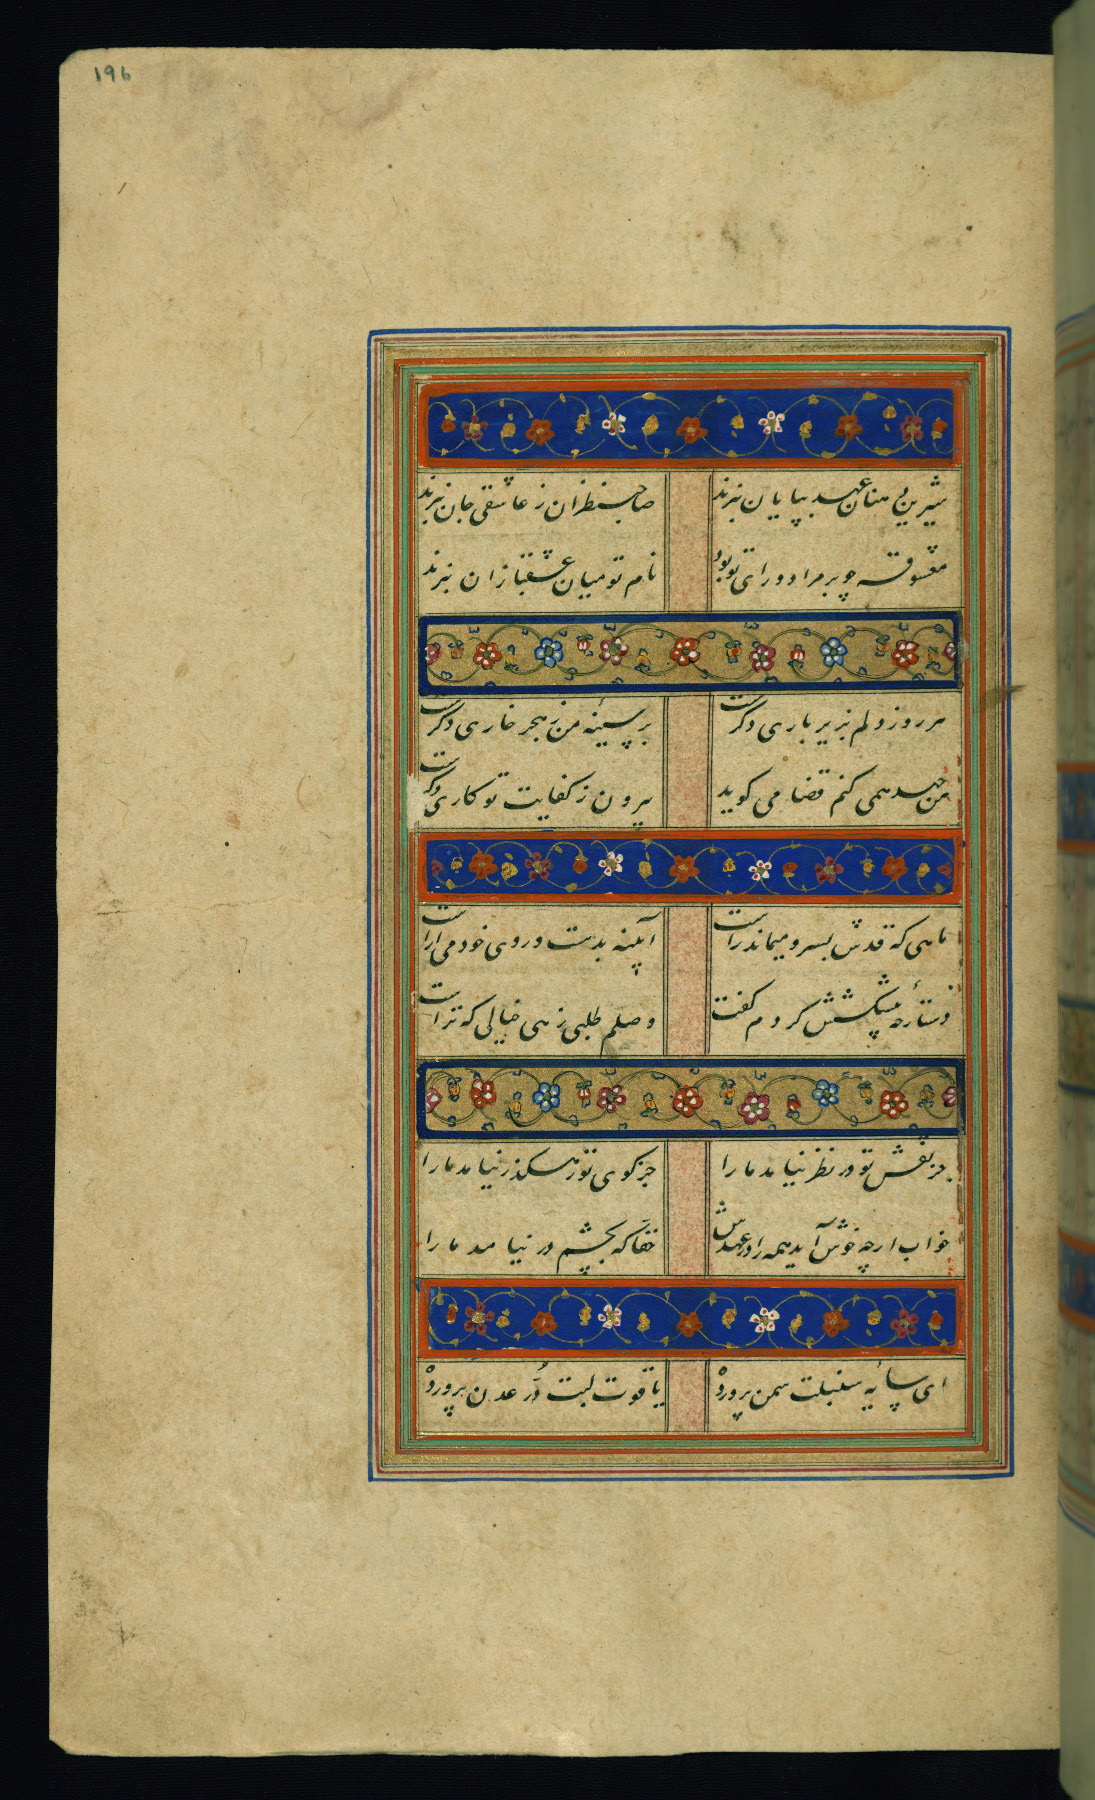 196
شیرین دهنان عهد بپایان نبرند صاحب نظران ز عاشقی جان نبرند
معشوقه چو بر مراد و رای تو بود نام تو میان عشقبازان نبرند
هر روز دلم بزیر باری دگرست بر سینهٔ من ز هجر خاری دگرست
من جهد همی کنم قضا می کوید بیرون ز کفایت تو کاری دگرست
ماهی که قدش بسرو میماند راست آیینه بدست و روی خود می آراست
دستارچهٔ پیشکشش کردم کفت وصلم طلبی زهی خیالی که تراست
جز نقش تو در نظر نیامد ما را جز کوی تو رهکذر نیامد ما را
خواب ارچه خوش آید همه را در عهدش حقا که بچشم در نیامد ما را
ای سایهٔ سنبلت سمن پرورده یاقوت لبت دُر عدن پرورده